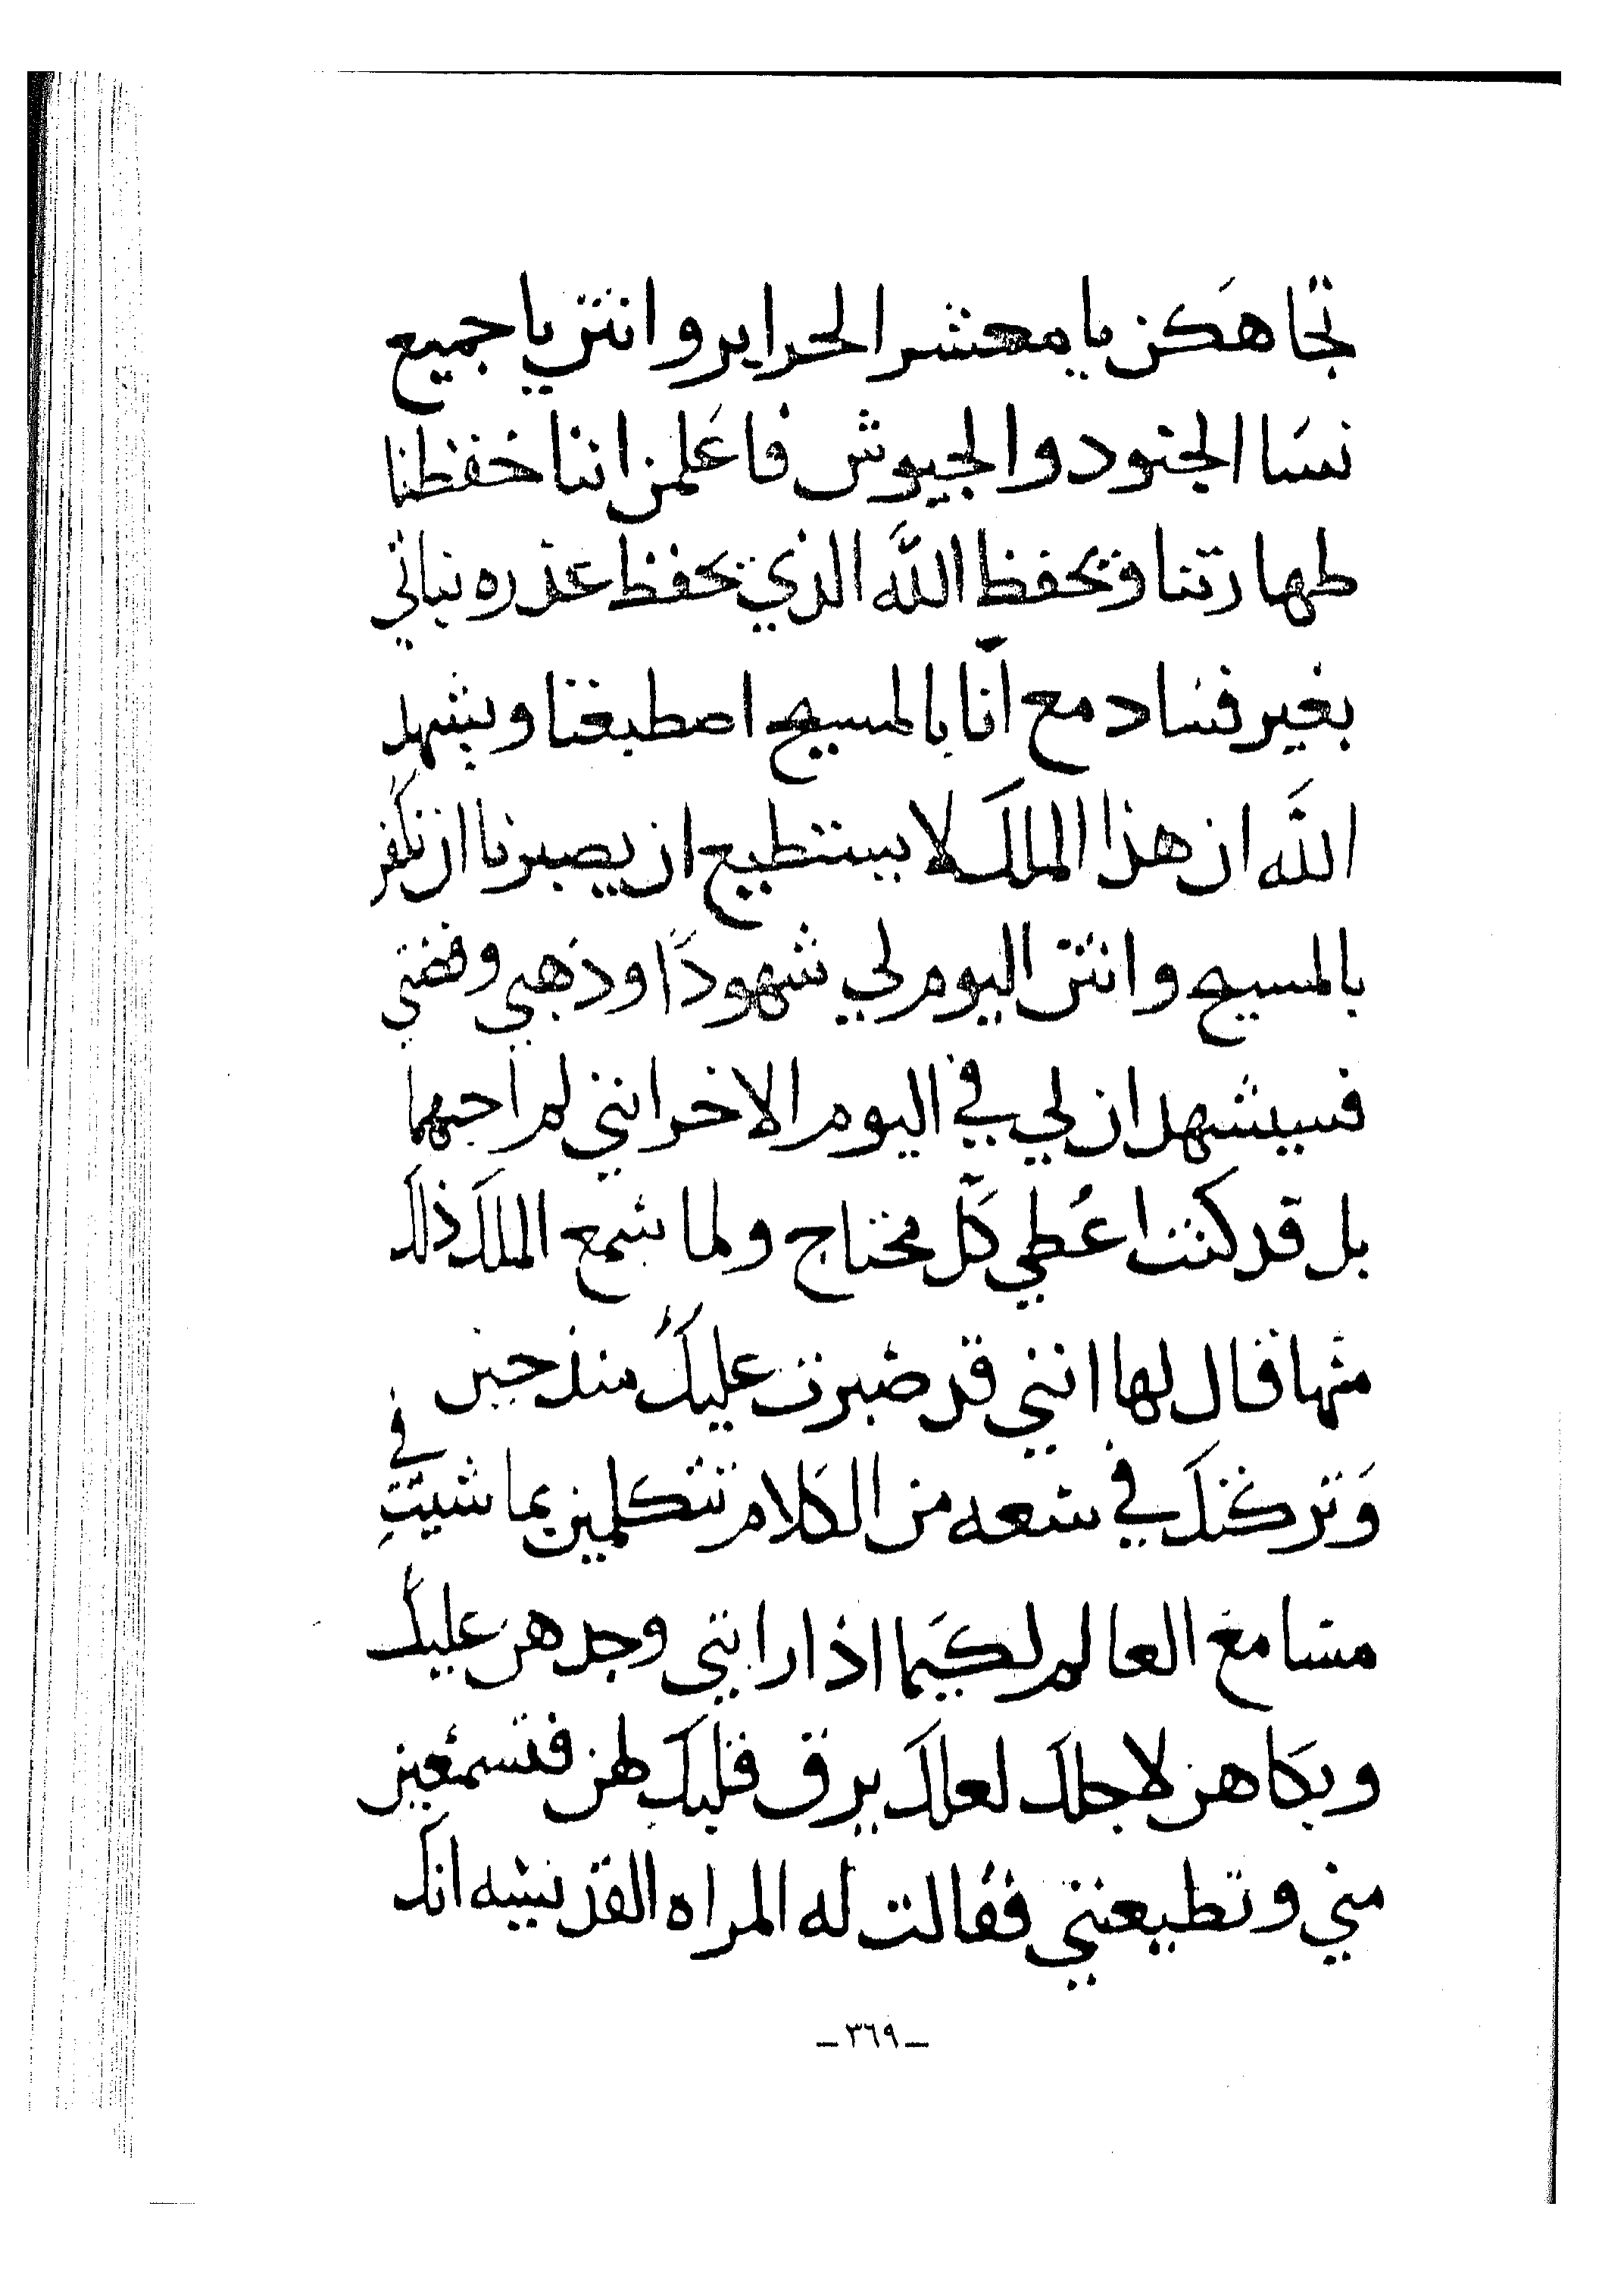 تجاهكن يا معشر الحراير وانتن يا جميع
نسا الجنود والجيوش فاعلمن اننا حفظنا
طهارتنا وبحفظ الله الذي يحفظ عذره بناتي
بغير فساد مع انا بالمسيح اصطبغنا ويشهد
الله ان هذا الملك لا يستطيع ان يصيرنا ان نكفر
بالمسيح وانتن اليوم لي شهودًا وذهبي وفضتي
فسيشهدان لي في اليوم الاخر انني لم احبهما
بل قد كنت اعُطي كَل محتاج ولما سمع الملك ذلك
منها قال لها انني قد صبرت عليك منذ حين
وَتركتك في سعه من الكلام تتكلمين بما شيتِ في
مسامع العالم لكيَما اذا رايتي وجدهن عليك
وبكاهن لاجلك لعلك يرق قلبك لهن فتسمعين
مني وتطيعنني فقالت له المراه القديسه انك
ـ٣٦٩ـ